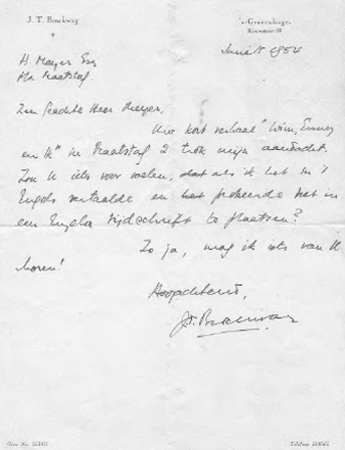 J. T. Brockway
's-Gravenhage,
Juni 5 1954
H. Meyer Esq
Zeer geachte Heer Meyer,
Uw kort verhaal "Wim, Emmy
en Ik" in Maatstaf 2 trok mijn aandacht.
Zou U iets voor voelen, dat als ik het in 't
Engels vertaalde en het probeerde het in
een Engels tijdschrift te plaatsen?
Zo ja, mag ik iets van U
horen!
Hoogachtend,
J.T. Brockway
Giro No.
Telefoon